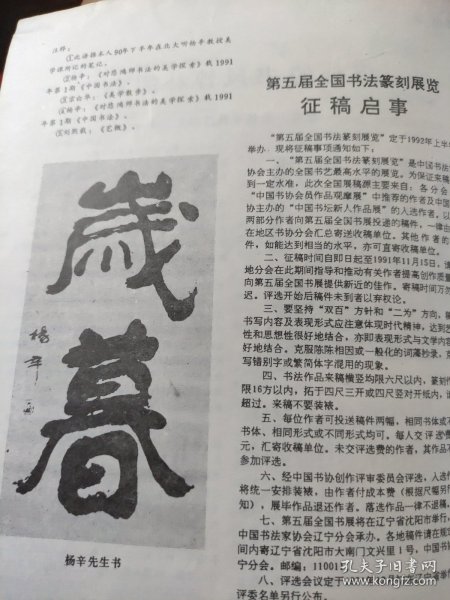 注释：
①此语据本人90年下半年在北大听杨辛教授美
学课所记的笔记。
②杨辛：《对悲鸿师书法的美学探索》载1991
年第1期《中国书法》。
③宗白华：《美学散步》。
④杨辛：《对悲鸿师书法的美学探索》载1991
年第1期《中国书法》。
⑤刘熙载：《艺概》。
歲
暮
楊辛
杨辛先生书
第五届全国书法篆刻展览
征稿启事
“第五届全国书法篆刻展览”定于1992年上半
举办，现将征稿事项通知如下：
一、“第五届全国书法篆刻展览”是中国书法
协会主办的全国书艺最高水平的展览。为保证来稿
到一定水准，此次全国展稿源主要来自：各分会
“中国书协会员作品观摩展”中推荐的作者及中国
协主办的“中国书坛新人作品展”的入选作者，以
两部分作者向第五届全国书展投递的稿件，一律由
在地区书协分会汇总寄送收稿单位。其他作者的
件，如能达到相当的水平，亦可直寄收稿单位。
二、征稿时间自即日起至1991年11月15日，请
地分会在此期间指导和推动有关作者提高创作质量
向第五届全国书展提供新近的佳作。寄稿时间万勿
迟。评选开始后稿件未到者以弃权论。
三、要坚持“双百”方针和“二为”方向，稿
书写内容及表现形式应注意体现时代精神，达到艺
性和思想性很好地结合，亦即表现形式与文学内容
好地结合。克服陈陈相因或一般化的词藻抄录，克
写错别字或繁简体字混用的现象。
四、书法作品来稿横竖均限六尺以内，篆刻
限16方以内，拓于四尺三开或四尺竖对开纸内，请
超过。来稿不要装裱。
五、每位作者可投送稿件两幅，相同书体或不
书体、相同形式或不同形式均可。每人交评选费
元，汇寄收稿单位。未交评选费的作者，其作品不
参加评选。
六、经中国书协创作评审委员会评选，入选作
将统一安排装裱，由作者付成本费（根据尺幅另行
知），展毕作品退还作者。落选作品一律不退稿。
七、第五届全国书展将在辽宁省沈阳市举行，
中国书法家协会辽宁分会承办。各地稿件请在规
间内寄辽宁省沈阳市大南门文兴里1号，中国书
宁分会。邮编：11001
八、评选会议定于
评委名单另行公布。
孔夫子旧书网